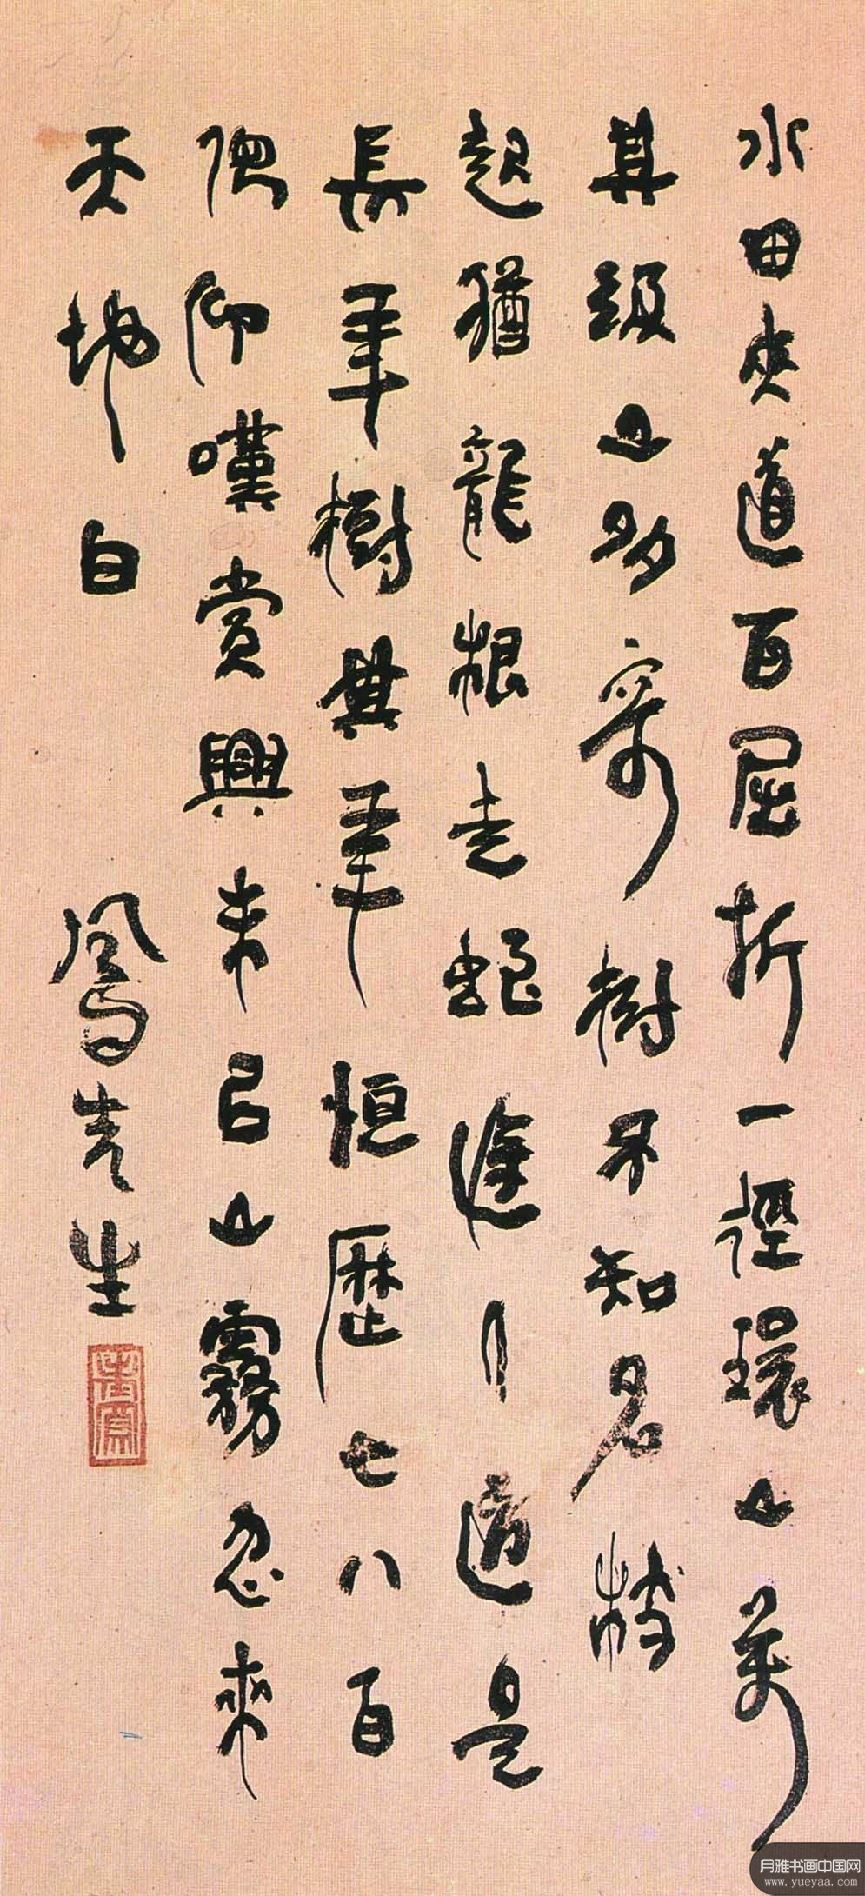 水田夾道百屈折一徑環山萬
其級山多樹不知名枝
起猶龍根走蛇人道是
長年樹其年恒歷七八百
俛仰嘆賞興未已山霧忽來
天地白 鳳先生
月雅书画中国网
www.yueyaa.com